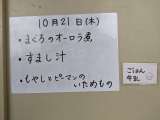 10月21日(木)
・まぐろのオーロラ煮
・すまし汁
・もやしとピーマンの
いためもの
ごはん
牛乳